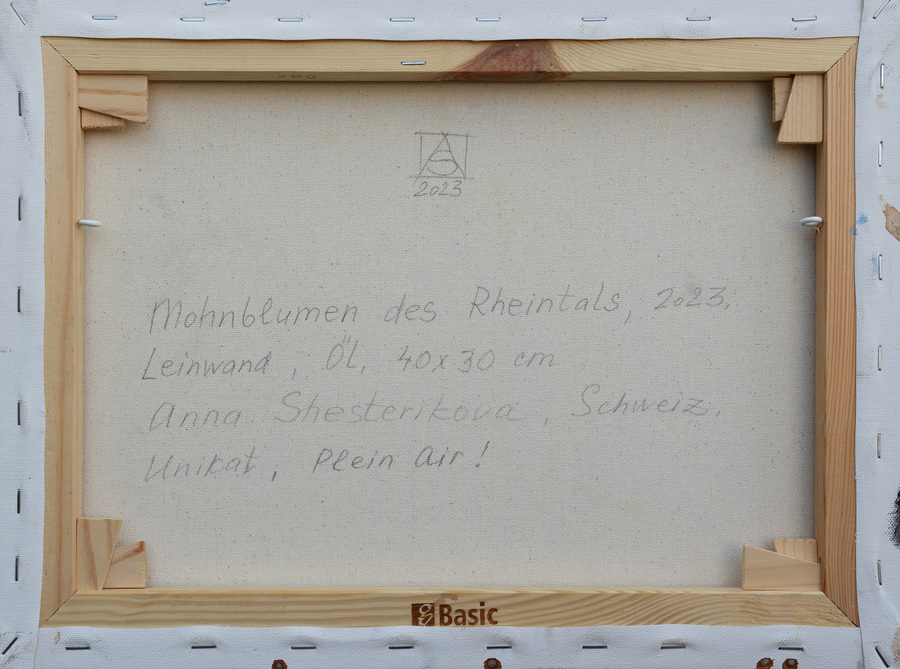 2023
Mohnblumen des Rheintals, 2023,
Leinwand, Öl, 40x30 cm
Anna Shesterikova, Schweiz.
Unikat, Plein Air!
Basic